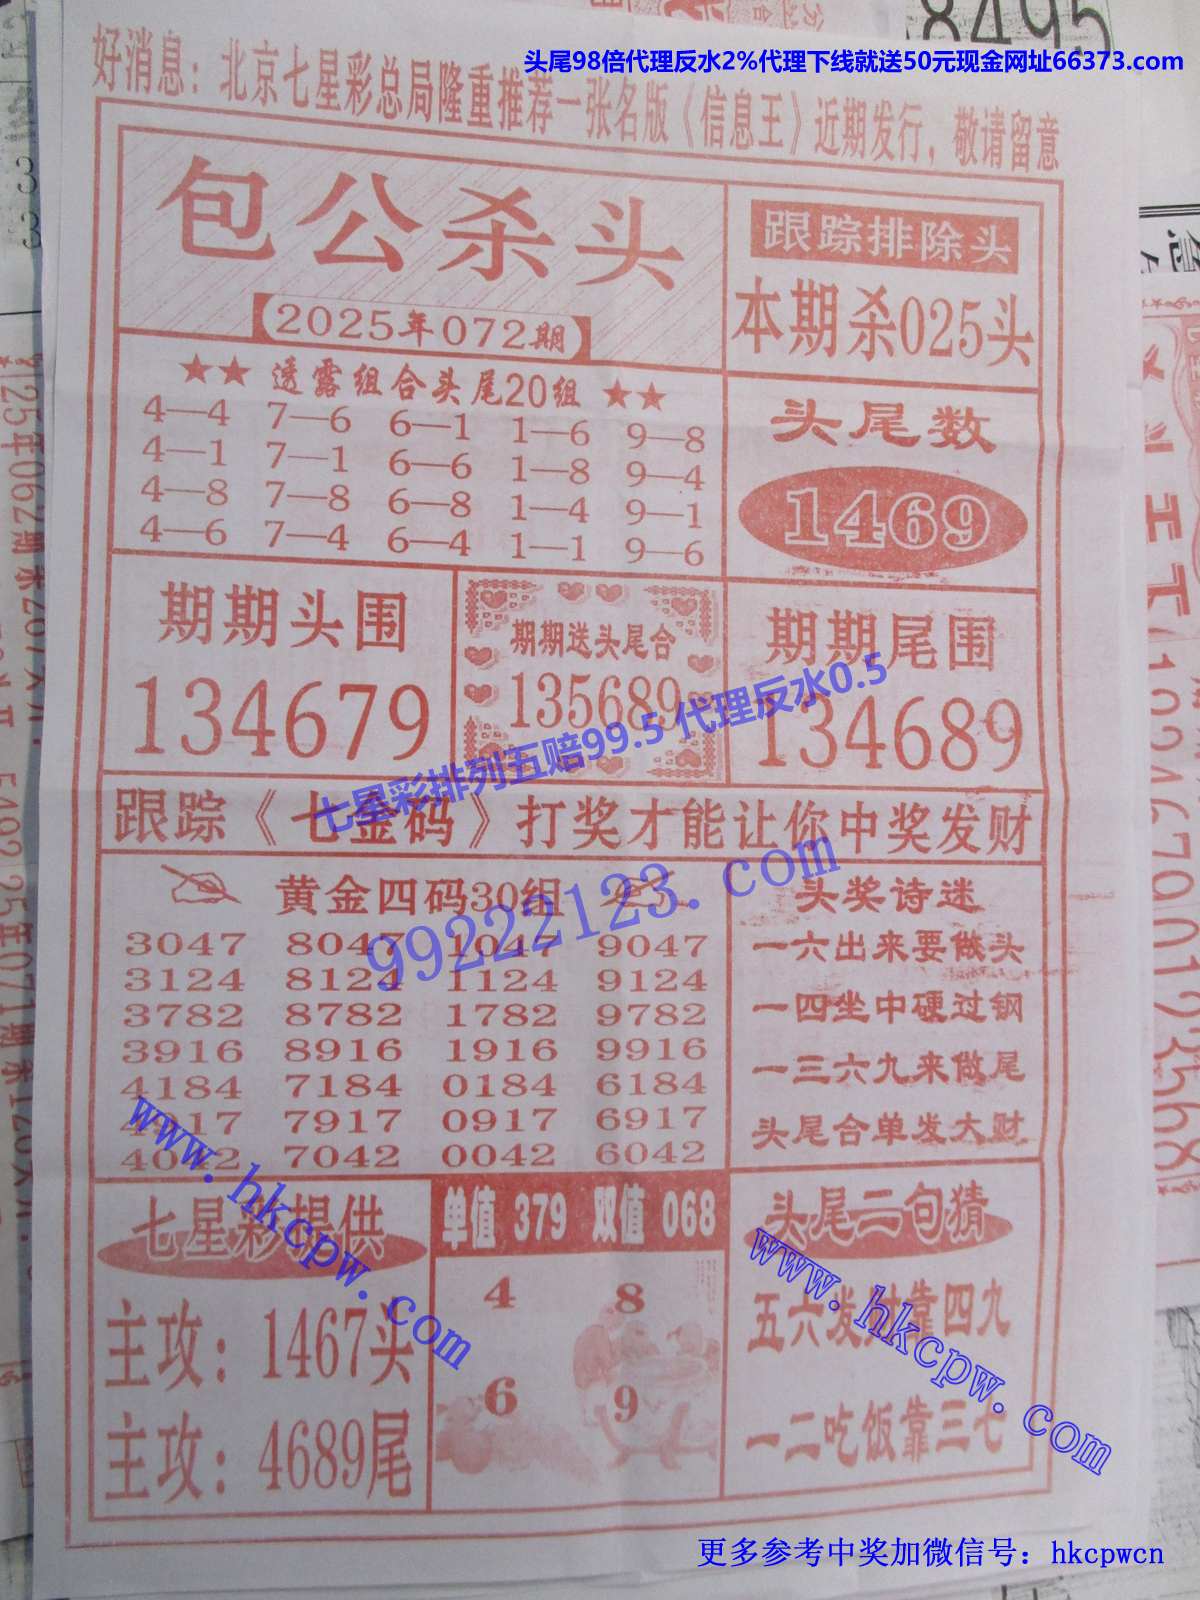 8495
头尾98倍代理反水2%代理下线就送50元现金网址66373.com
好消息：北京七星彩总局隆重推荐一张名版《信息王》近期发行，敬请留意
包公杀头
【2025年072期】
跟踪排除头
本期杀025头
★★ 透露组合头尾20组 ★★
4—4 7—6 6—1 1—6 9—8
4—1 7—1 6—6 1—8 9—4
4—8 7—8 6—8 1—4 9—1
4—6 7—4 6—4 1—1 9—6
头尾数
1469
期期头围
134679
期期送头尾合
135689
期期尾围
134689
七星彩排列五赔99.5 代理反水0.5
跟踪《七金码》打奖才能让你中奖发财
99222123.com
黄金四码30组
3047 8047 1047 9047
3124 8124 1124 9124
3782 8782 1782 9782
3916 8916 1916 9916
4184 7184 0184 6184
4917 7917 0917 6917
4042 7042 0042 6042
头奖诗迷
一六出来要做头
一四坐中硬过钢
一三六九来做尾
头尾合单发大财
www.hkcpw.com
七星彩提供
主攻：1467头
主攻：4689尾
单值 379 双值 068
4 8
6 9
头尾二句猜
五六发财靠四九
一二吃饭靠三七
www.hkcpw.com
更多参考中奖加微信号：hkcpwcn